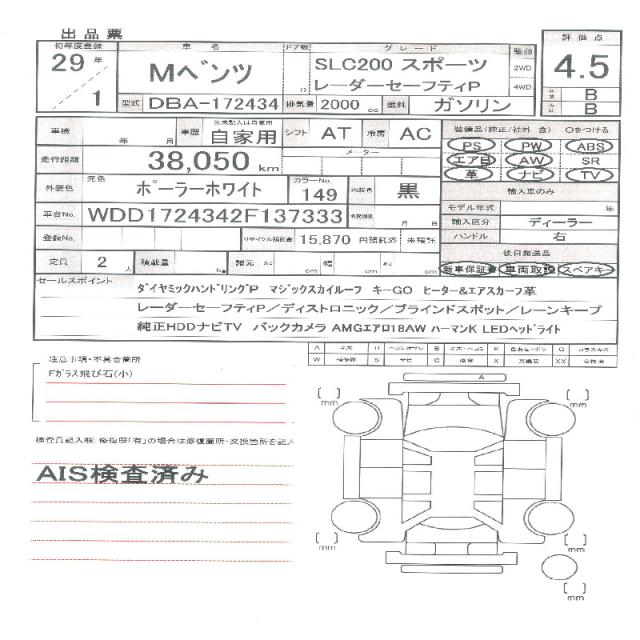 出品票
初年度登録 車名 ドア数 グレード 駆動 評価点
29年 Mベンツ SLC200 スポーツ 2WD 4.5
1 レーダーセーフティP 4WD B
型式 DBA-172434 排気量 2000 cc 燃料 ガソリン B
車検 年 月 車歴 自家用 シフト AT 冷房 AC 装備品(純正/社外 含) 〇をつける
走行距離 38,050 km メーター PS PW ABS
エアB AW SR
革 ナビ TV
外装色 元色 ポーラーホワイト カラーNo. 149 内装色 黒 輸入車のみ
モデル年式 年
車台No. WDD1724342F137333 月 日 輸入区分 ディーラー
登録No. リサイクル預託金 15,870 円預託済 未預託 ハンドル 右
定員 2 人 積載量 kg 諸元 長さ cm 幅 cm 高 cm 後日発送品
新車保証書 車両取説 スペアキー
セールスポイント
ダイヤミックハンドリングP マジックスカイルーフ キーGO ヒーター&エアスカーフ革
レーダーセーフティP/ディストロニック/ブラインドスポット/レーンキープ
純正HDDナビTV バックカメラ AMGエアロ18AW ハーマンK LEDヘッドライト
注意事項・不具合箇所
Fガラス飛び石(小)
検査員記入欄:修復歴「有」の場合は修復箇所・交換箇所を記入
AIS検査済み
A
mm
mm
mm
mm
mm